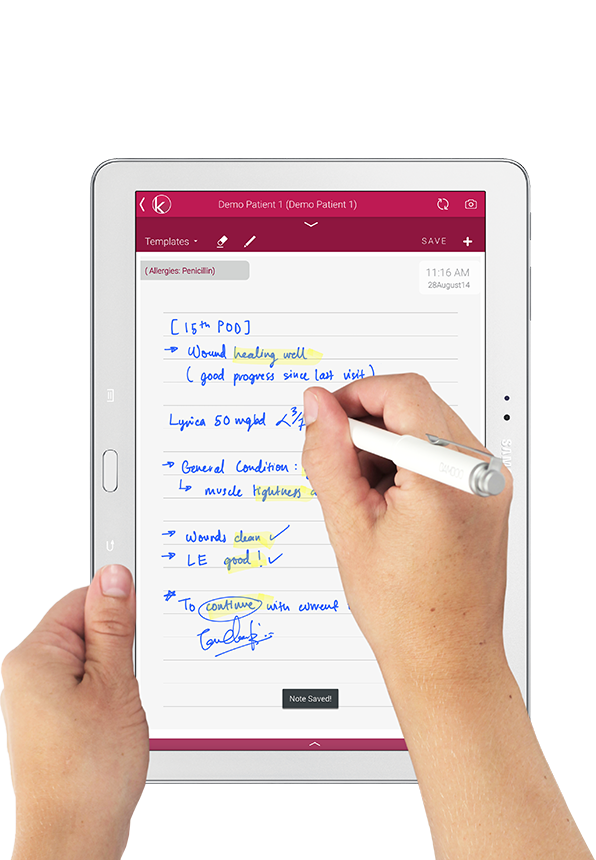 Demo Patient 1 (Demo Patient 1)
Templates
SAVE
( Allergies: Penicillin)
11:16 AM
28August14
[ 15th POD ]
→ Wound healing well
( good progress since last visit )
Lyrica 50 mg bd
→ General Condition :
↳ muscle tightness
→ Wounds clean ✓
→ LE good ! ✓
* To continue with current
Note Saved!
SAM